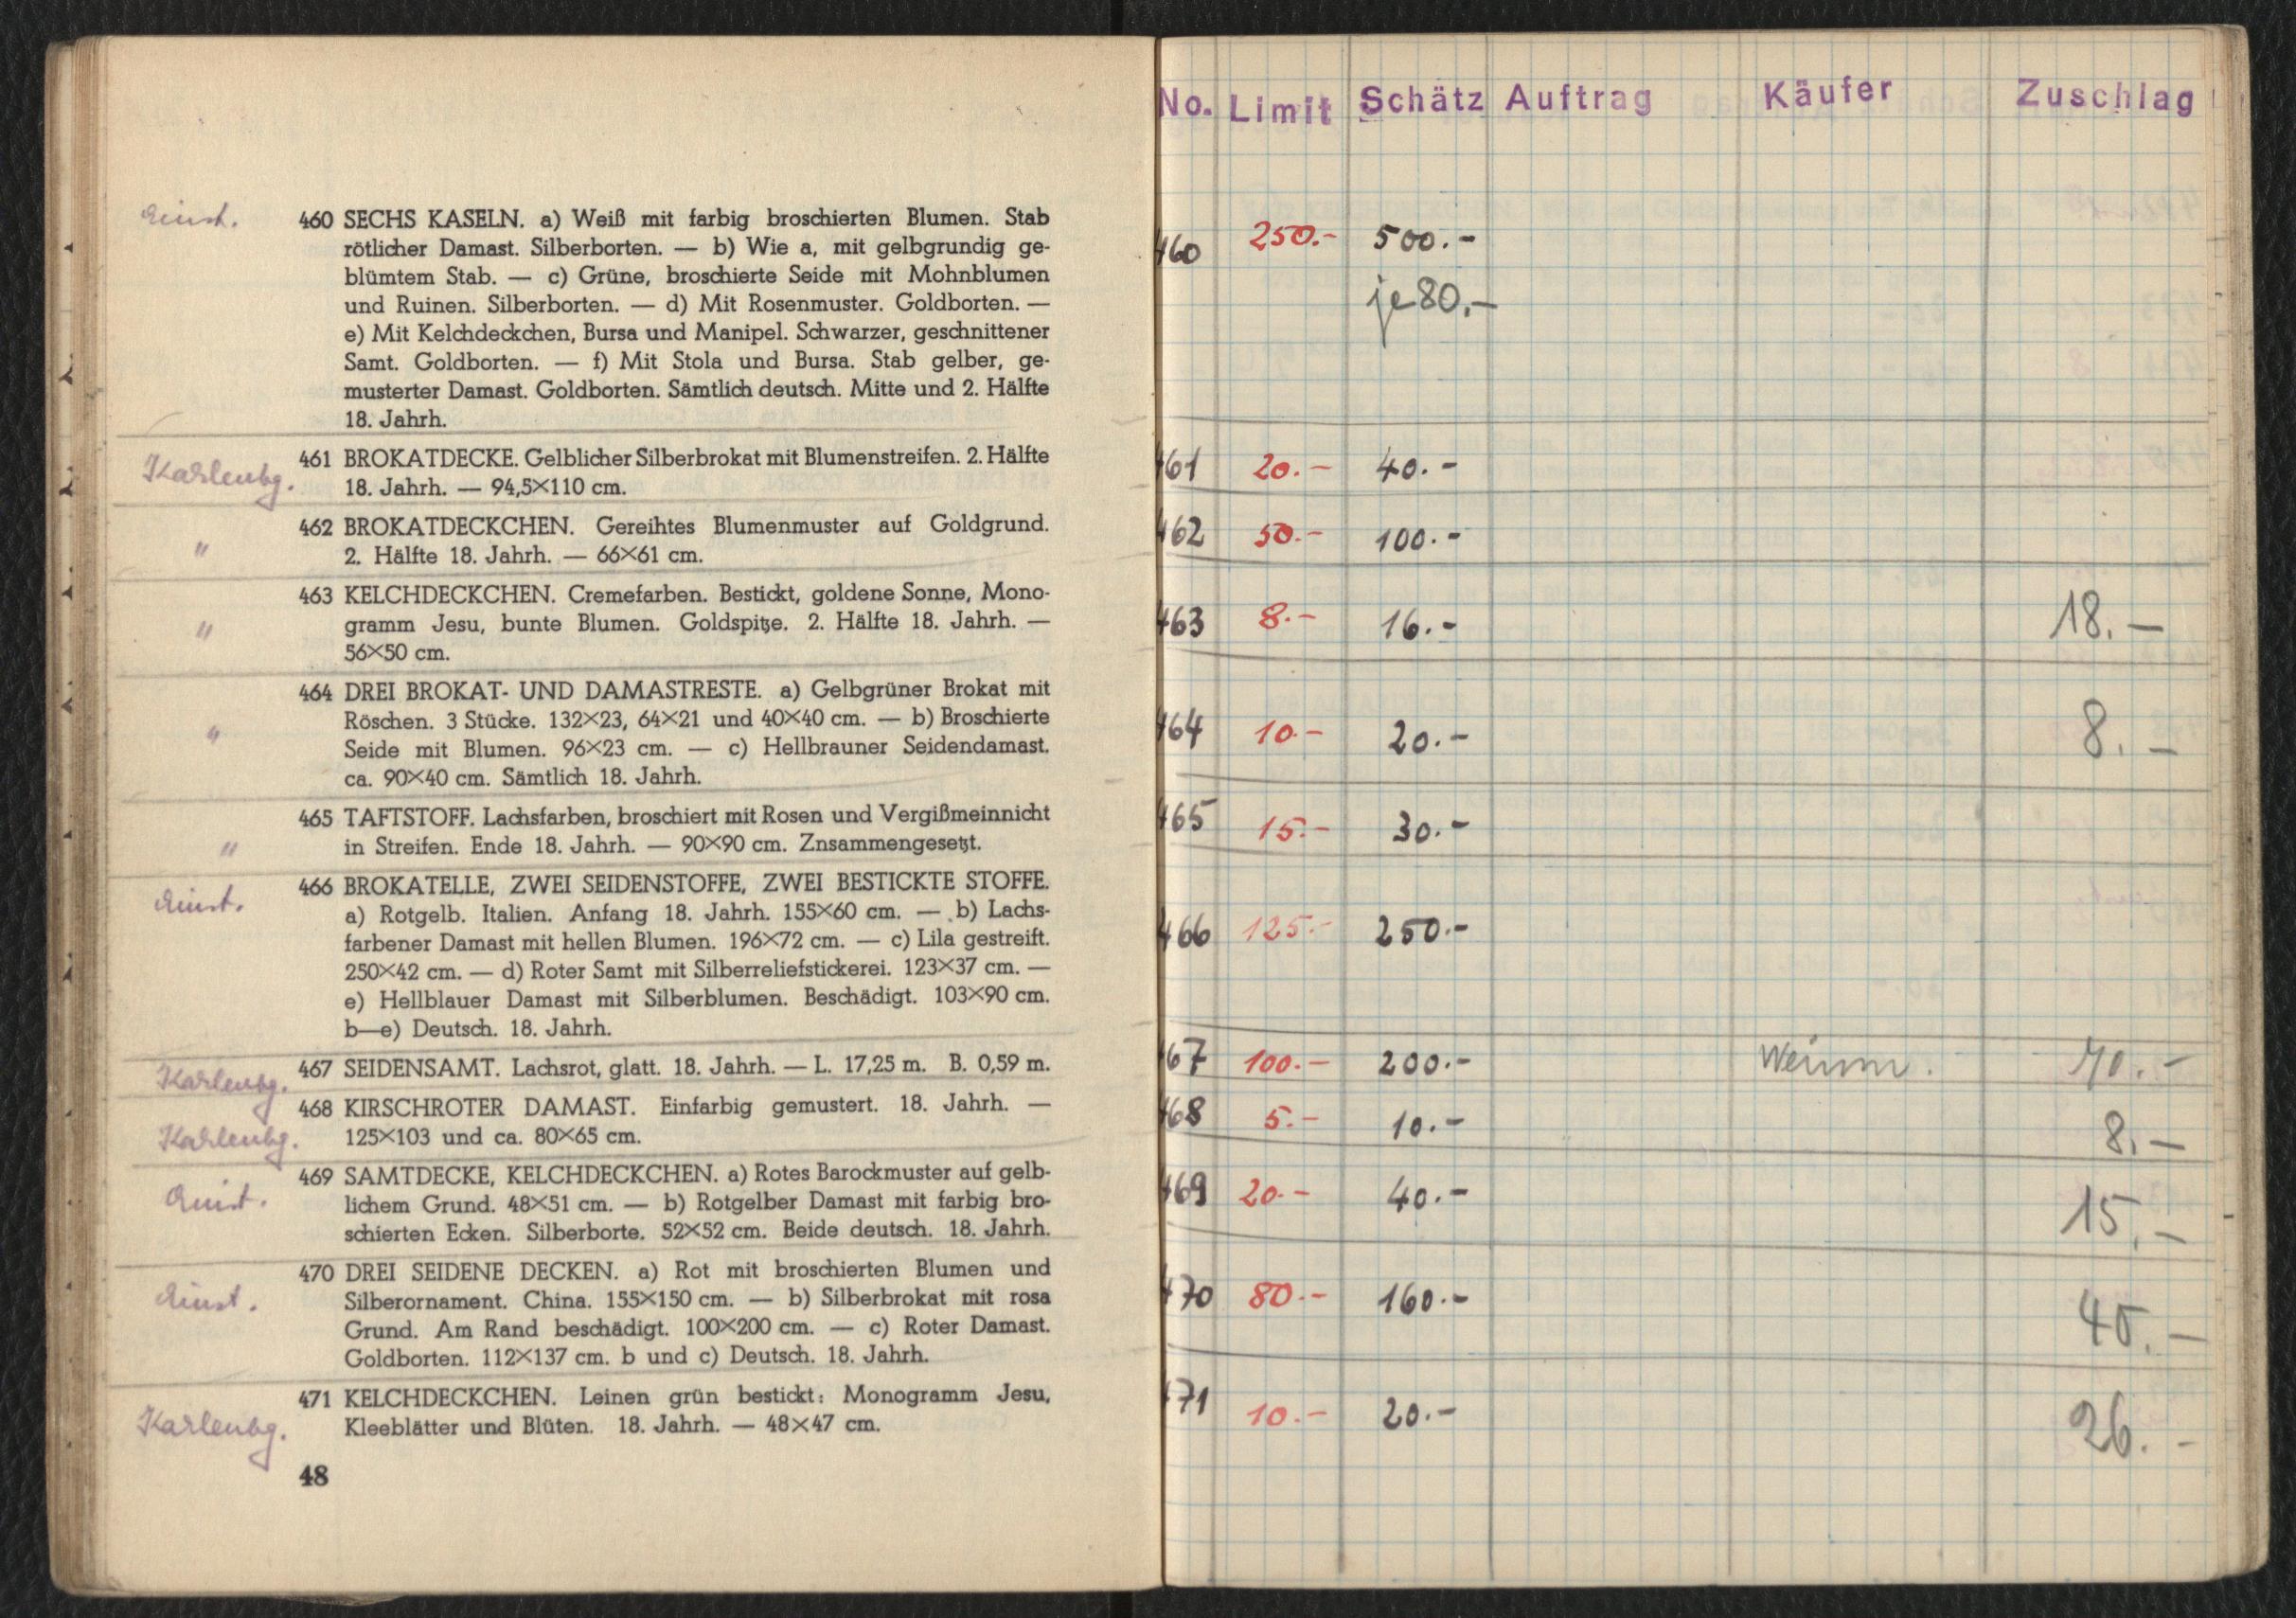 460 SECHS KASELN. a) Weiß mit farbig broschierten Blumen. Stab
rötlicher Damast. Silberborten. — b) Wie a, mit gelbgrundig ge-
blümtem Stab. — c) Grüne, broschierte Seide mit Mohnblumen
und Ruinen. Silberborten. — d) Mit Rosenmuster. Goldborten. —
e) Mit Kelchdeckchen, Bursa und Manipel. Schwarzer, geschnittener
Samt. Goldborten. — f) Mit Stola und Bursa. Stab gelber, ge-
musterter Damast. Goldborten. Sämtlich deutsch. Mitte und 2. Hälfte
18. Jahrh.
Karlenbg. 461 BROKATDECKE. Gelblicher Silberbrokat mit Blumenstreifen. 2. Hälfte
18. Jahrh. — 94,5×110 cm.
" 462 BROKATDECKCHEN. Gereihtes Blumenmuster auf Goldgrund.
2. Hälfte 18. Jahrh. — 66×61 cm.
" 463 KELCHDECKCHEN. Cremefarben. Bestickt, goldene Sonne, Mono-
gramm Jesu, bunte Blumen. Goldspitze. 2. Hälfte 18. Jahrh. —
56×50 cm.
" 464 DREI BROKAT- UND DAMASTRESTE. a) Gelbgrüner Brokat mit
Röschen. 3 Stücke. 132×23, 64×21 und 40×40 cm. — b) Broschierte
Seide mit Blumen. 96×23 cm. — c) Hellbrauner Seidendamast.
ca. 90×40 cm. Sämtlich 18. Jahrh.
" 465 TAFTSTOFF. Lachsfarben, broschiert mit Rosen und Vergißmeinnicht
in Streifen. Ende 18. Jahrh. — 90×90 cm. Znsammengesetzt.
466 BROKATELLE, ZWEI SEIDENSTOFFE, ZWEI BESTICKTE STOFFE.
a) Rotgelb. Italien. Anfang 18. Jahrh. 155×60 cm. — b) Lachs-
farbener Damast mit hellen Blumen. 196×72 cm. — c) Lila gestreift.
250×42 cm. — d) Roter Samt mit Silberreliefstickerei. 123×37 cm. —
e) Hellblauer Damast mit Silberblumen. Beschädigt. 103×90 cm.
b—e) Deutsch. 18. Jahrh.
Karlenbg. 467 SEIDENSAMT. Lachsrot, glatt. 18. Jahrh. — L. 17,25 m. B. 0,59 m.
Karlenbg. 468 KIRSCHROTER DAMAST. Einfarbig gemustert. 18. Jahrh. —
125×103 und ca. 80×65 cm.
469 SAMTDECKE, KELCHDECKCHEN. a) Rotes Barockmuster auf gelb-
lichem Grund. 48×51 cm. — b) Rotgelber Damast mit farbig bro-
schierten Ecken. Silberborte. 52×52 cm. Beide deutsch. 18. Jahrh.
470 DREI SEIDENE DECKEN. a) Rot mit broschierten Blumen und
Silberornament. China. 155×150 cm. — b) Silberbrokat mit rosa
Grund. Am Rand beschädigt. 100×200 cm. — c) Roter Damast.
Goldborten. 112×137 cm. b und c) Deutsch. 18. Jahrh.
Karlenbg. 471 KELCHDECKCHEN. Leinen grün bestickt: Monogramm Jesu,
Kleeblätter und Blüten. 18. Jahrh. — 48×47 cm.
48
No. Limit Schätz Auftrag Käufer Zuschlag
460 250.- 500.-
je 80,-
461 20.- 40.-
462 50.- 100.-
463 8.- 16.- 18.-
464 10.- 20.- 8.-
465 15.- 30.-
466 125.- 250.-
67 100.- 200.-
68 5.- 10.- 8.-
469 20.- 40.- 15.-
70 80.- 160.-
71 10.- 20.- 26.-